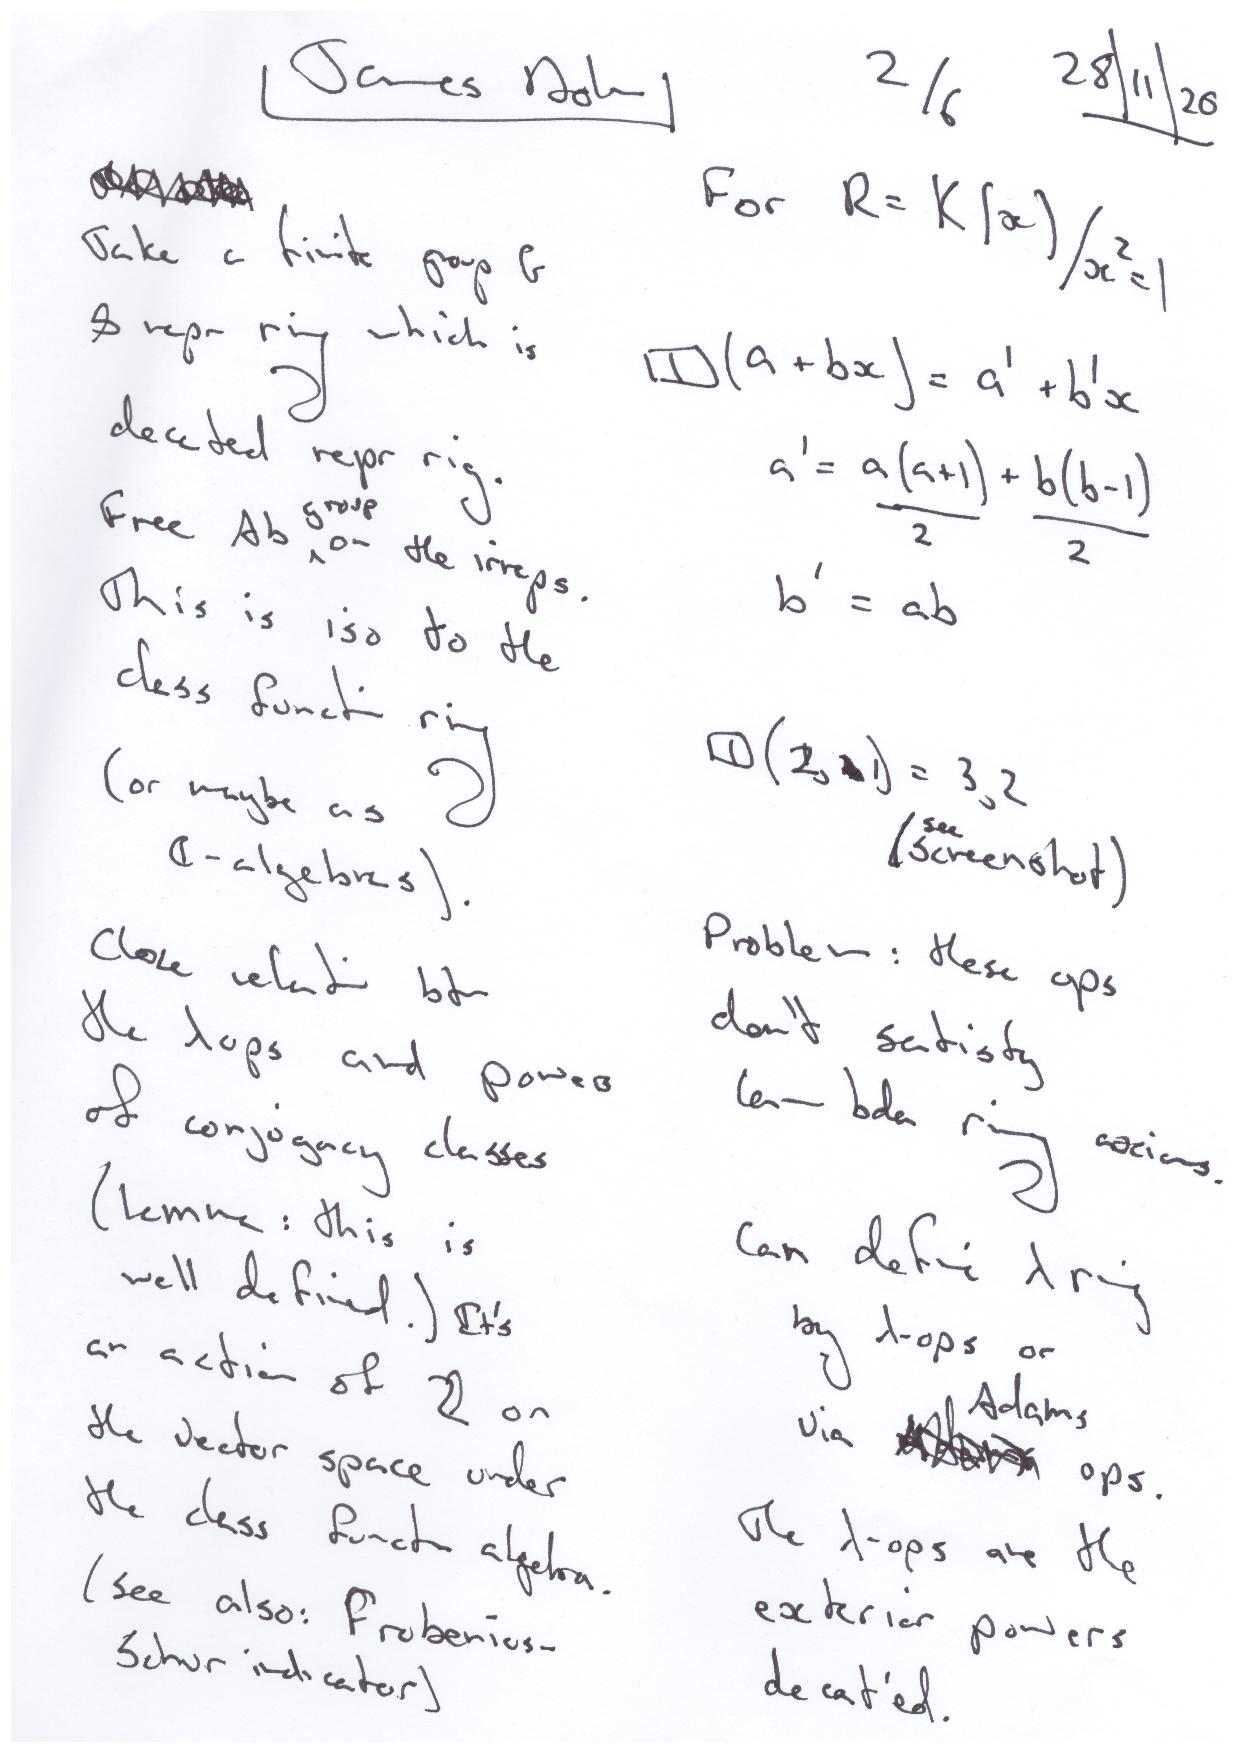 James Dol
2/6
28/11/20
Take a finite group G
& repr ring which is
decated repr rig.
Free Ab group on the irreps.
This is iso to the
class function ring
(or maybe as
ℂ-algebras).
Close relation btn
the λops and powers
of conjugacy classes
(Lemma: this is
well defined.) It's
an action of ℤ on
the vector space under
the class functn algebra.
(see also: Frobenius-
Schur indicator)
For R = K[x]/x²=1
(a + bx) = a' + b'x
a' = a(a+1)/2 + b(b-1)/2
b' = ab
(2, 1) = 3,2
(see screenshot)
Problem: these ops
don't satisfy
lambda ring axioms.
Can define λ ring
by λ-ops or
via Adams ops.
The λ-ops are the
exterior powers
decat'ed.